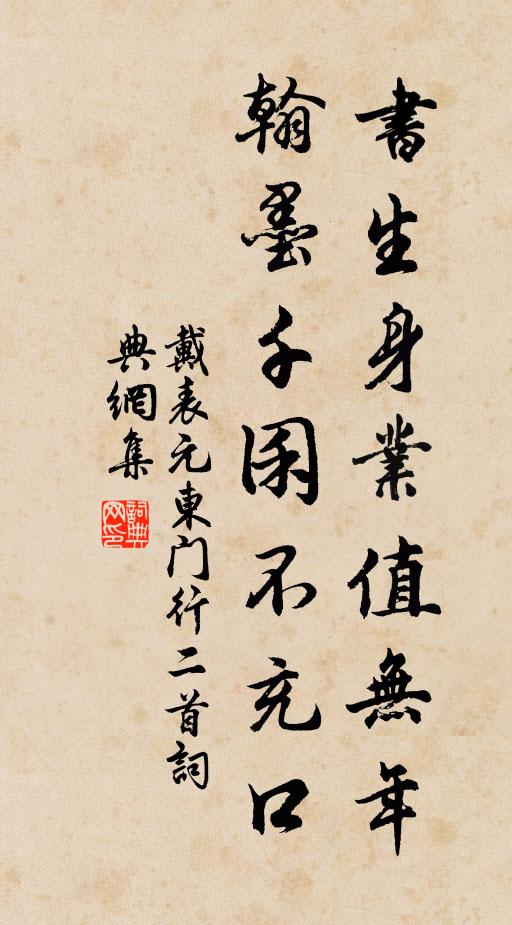 書生身業值無年
翰墨千囷不充口
戴表元東門行二首詞
典網集
詞典
网印